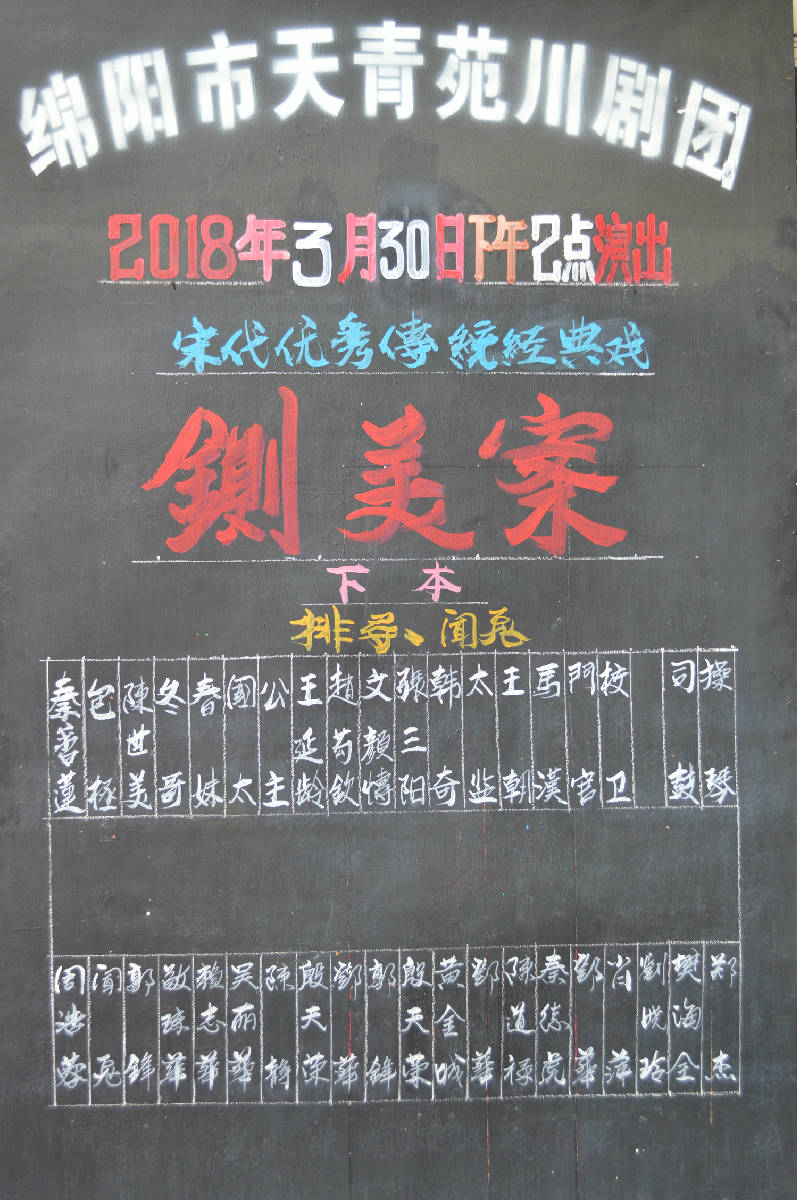 绵阳市天青苑川剧团
2018年3月30日下午2点演出
宋代优秀傳統经典戏
鍘美案
下本
排导、闻
秦香蓮
包拯
陳世美
冬哥
春妹
國太
公主
王延龄
趙芶钦
文顏
張三阳
韩奇
太监
王朝
馬漢
門官
校卫
司鼓
操琴
周洪蓉
闻
郭鋒
敬琼華
賴志華
吴丽華
陳静
殷天荣
鄧華
郭鋒
殷天荣
黄金城
鄧華
陳道禄
秦德虎
鄧華
肖萍
劉晓玲
樊海全
郑杰